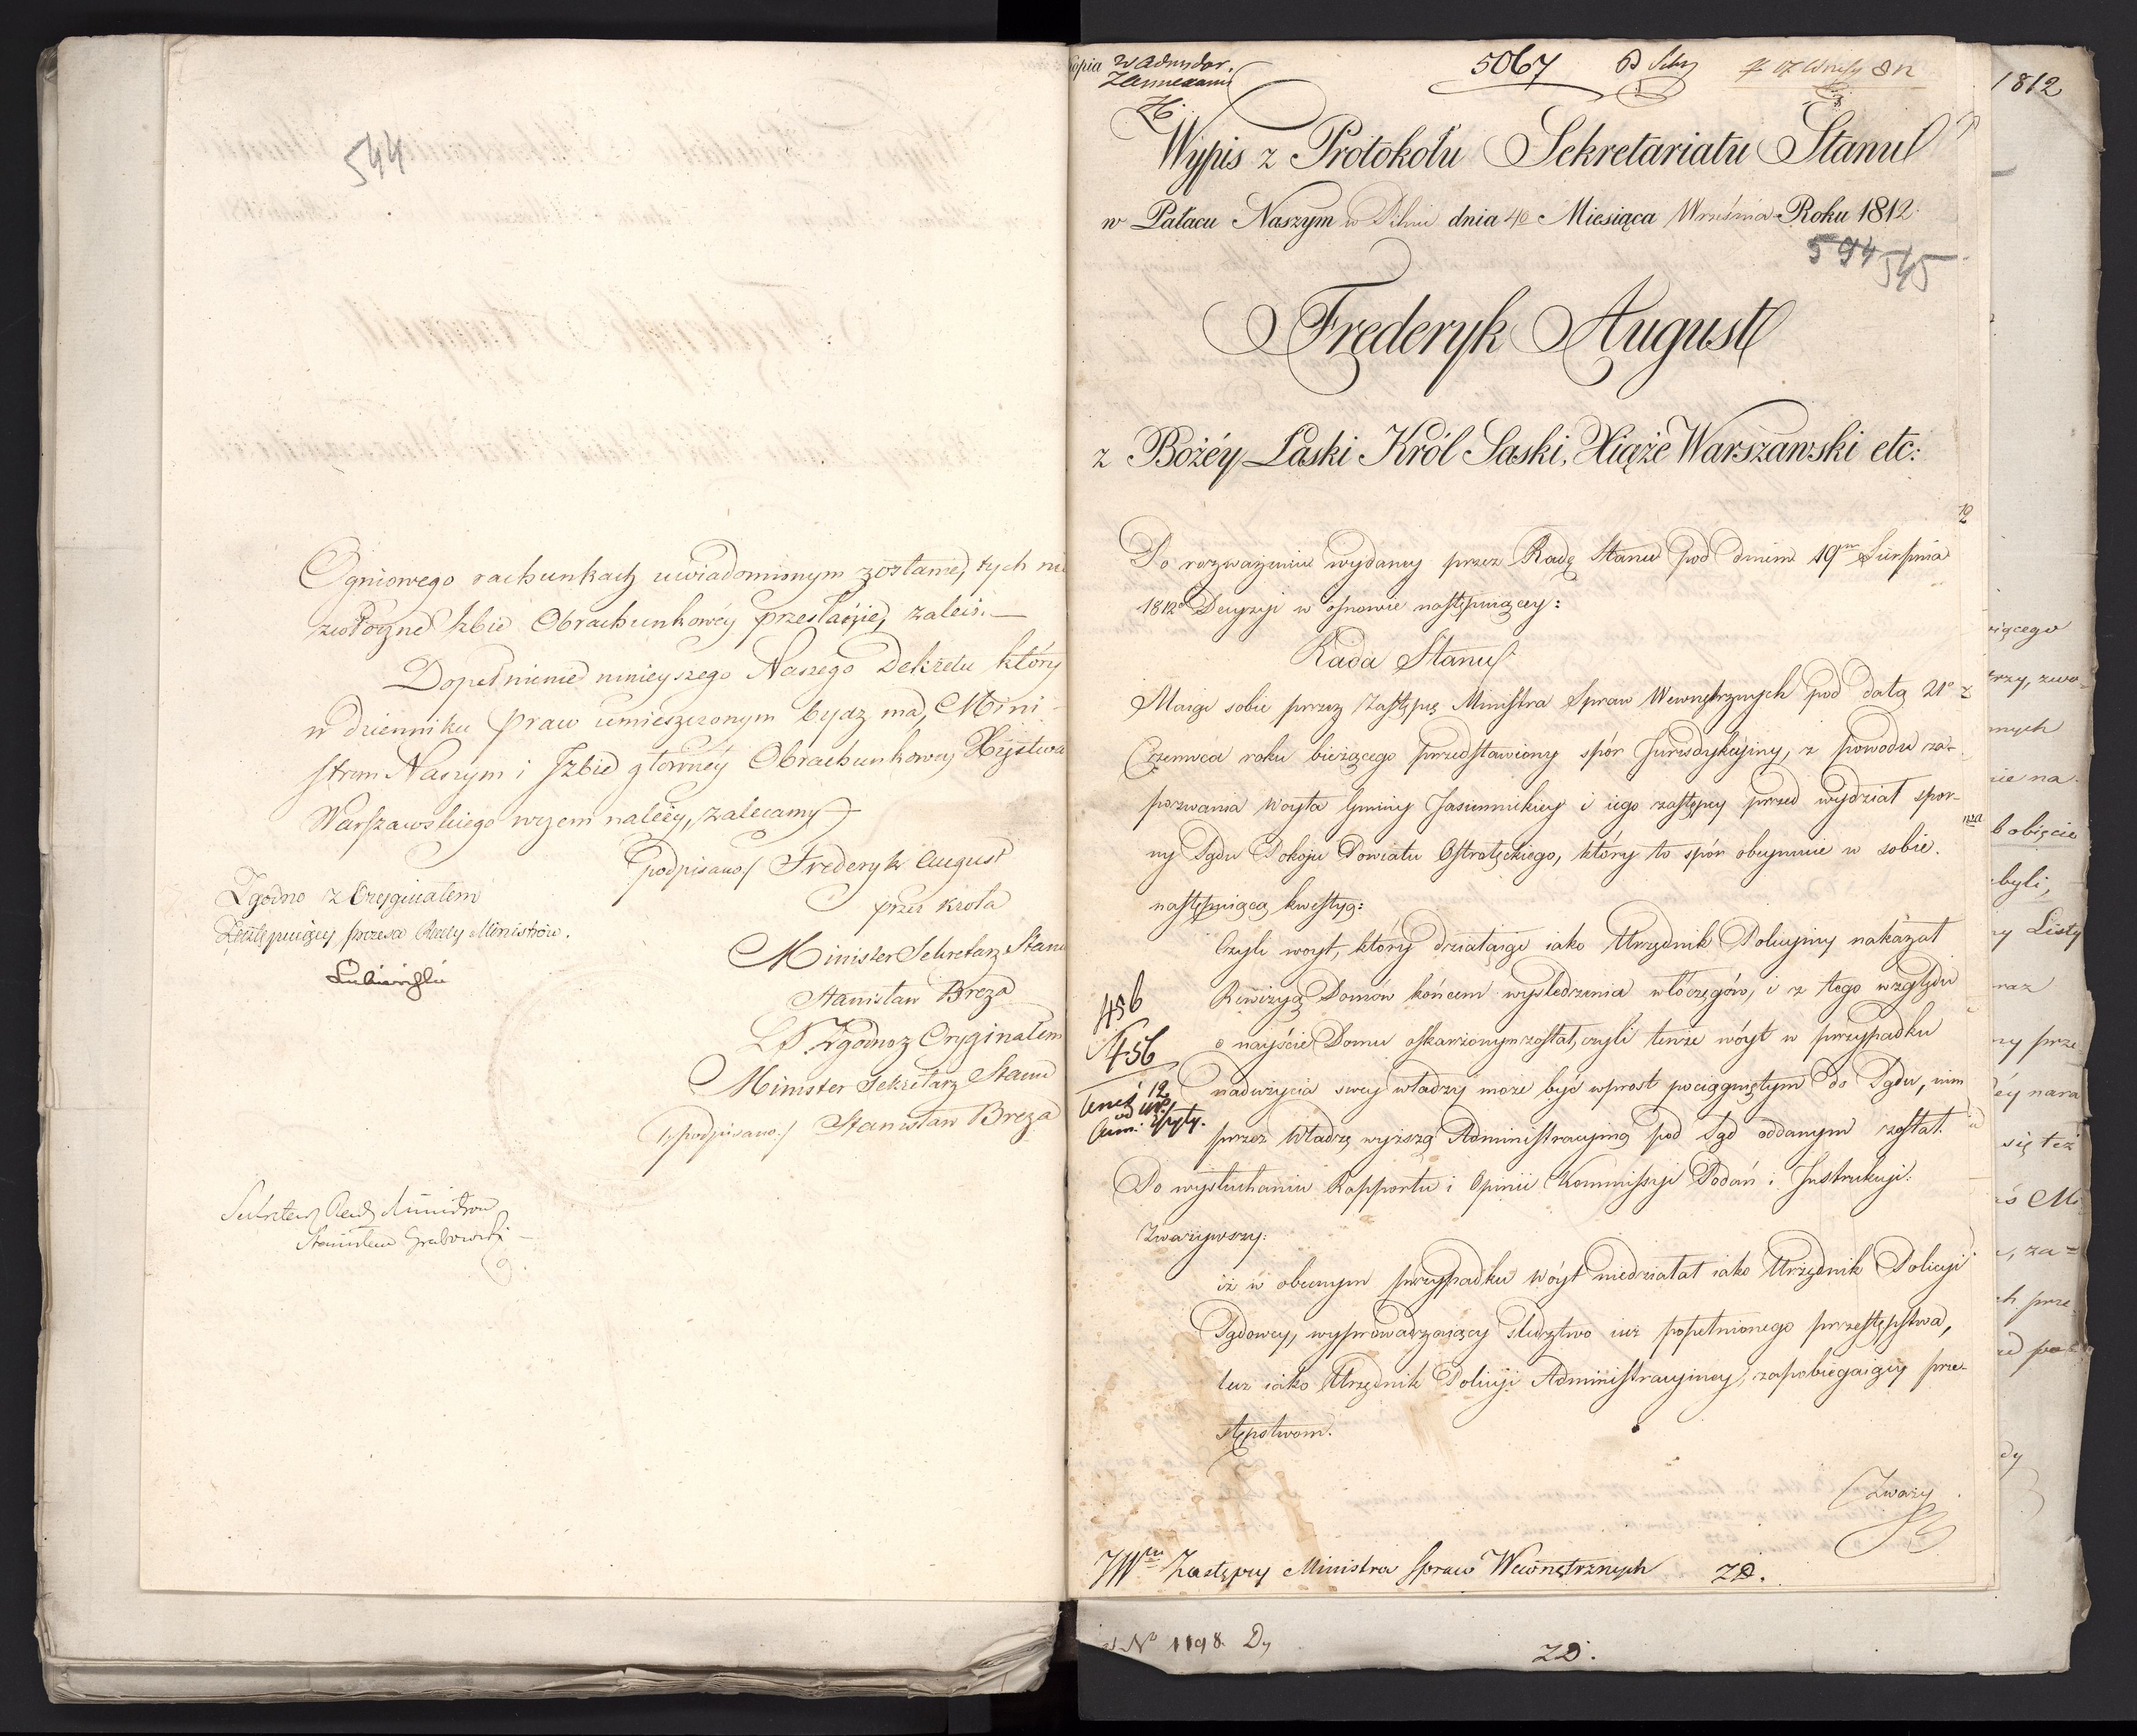 544
Ogniowego rachunkach uwiadomionym zostanie, tych
zwłocznie Izbie Obrachunkowéy przesłanie, zaleci. —
Dopełnienie ninieyszego Naszego Dekretu który
w dzienniku praw umieszczonym bydz ma, Mini-
strom Naszym i Izbie główney Obrachunkowey Xięstwa
Warszawskiego wczem należy, zalecamy
podpisano/ Frederyk August
przez Króla
Minister Sekretarz Stanu
Stanisław Breza
LS. Zgodno z Oryginałem
Minister Sekretarz Stanu
podpisano./ Stanisław Breza
Zgodno z Oryginałem
Zastępuiący prezesa Rady Ministrów.
Lubieński
Sekretarz Rady Ministrów
Stanisław Grabowski
5067
Wypis z Protokołu Sekretariatu Stanu
w Pałacu Naszym w Pilnic dnia 4o Miesiąca Września Roku 1812.
594 545
Frederyk August
z Bożéy Łaski Król Saski, Xiąże Warszawski etc:
Po rozważeniu wydaney przez Radę Stanu pod dniem 19m Sierpnia
1812o Decyzyi w osnowie następuiącey:
Rada Stanu
Maiąc sobie przez Zastępcę Ministra Spraw Wewnętrznych pod datą 21o
Czerwca roku bieżącego przedstawiony spór Jurisdykcyiny, z powodu za-
pozwania Woyta Gminy Jasiennickiey i iego zastępcy przed wydział spor-
ny Sądu Pokoju Powiatu Ostrołęckiego, który to spór obeymuie w sobie
następuiącą kwestyą:
Czyli woyt, który działaiąc iako Urzędnik Policyiny nakazał
Rewizyą Domów końcem wyśledzenia włóczęgów, i z tego względu
o nayście Domu oskarżonym został, czyli tenże wóyt w przypadku
nadużycia swey władzy może być wprost pociągniętym do Sądu, nim
przez Władzę wyższą Administracyiną pod Sąd oddanym został.
456
456
Po wysłuchaniu Rapportu i Opinii Kommissyi Podań i Instrukcyi:
Zważywszy:
iż w obecnym przypadku Wóyt niedziałał iako Urzędnik Policyi
Sądowey, wyprowadzaiący śledztwo iuż popełnionego przestępstwa,
lecz iako Urzędnik Policyi Administracyiney, zapobiegaiący prze-
stępstwom.
Zważy
JWmu Zastępcy Ministra Spraw Wewnętrznych ZD.
No 1198. Dy
ZD.
1812
iącego
rzy, zwo
nnych
nie na
b obięcie
byli,
Listy
raz
ny prze
éy nara
się też
ś Mi
, za=
h prze
dy